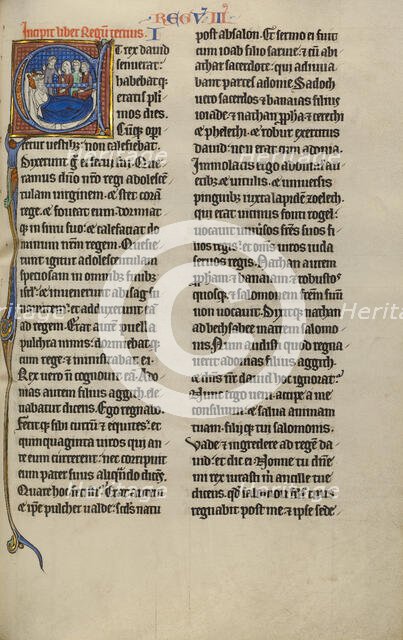 REGV III
Incipit liber Regũ tertius. I
Et rex david
senuerat:
habebatqȝ
etatis pli
mos dies.
Cũqȝ opi
retur vestibȝ: nõ calefiebat.
Dixerunt
ramus dño nr̃o regi adolescẽ
tulam virginem. et stet corã
rege. et foveat eum. dormiat
qȝ in sinu suo: et calefaciat do
minum nostrum regem. Quesie
runt igitur adolescẽtulam
speciosam in omnibȝ finibȝ
isrl.
ad regem. Erat autẽ puella
pulchra nimis: dormiebatqȝ
cum rege: et ministrabat ei.
Rex vero nõ cognovit eã. Ado
nias autem filius aggith. ele
vabatur dicens. Ego regnabo.
Fecitqȝ sibi currũ et equites: et
quinquaginta viros qui an
te eum currerent. nec corripuit
eum pater suus aliqũdo dicẽs.
Quare hoc fecisti: Erat autem
et ipẽ pulcher valde: scd̃s natu
post absalon. Et sermo ei fuit
cum ioab filio sarvie: et cũ abi
athar sacerdote: qui adiuva
bant partes adonie. Sadoch
vero sacerdos et banaias filius
ioiade et nathan pp̃ha et cerethi
et phelethi et robur exercitus
david: nõ erat cum adonia.
Immolatis ergo
tulis. et vitulis. et universis
pinguibȝ iuxta lapidẽ zoelech.
qui erat vicinus fonti rogel:
vocavit
os regis: et om̃s viros iuda
servos regis. Nathan autem
pp̃ham. et banaiam. et robustos
quosqȝ. et salomonem frem̃ suũ
non vocavit. Dixit qȝ nathan
ad bethsabee matrem salomo
nis. Num audisti quod regna
verit adonias filius aggith.
et dñs nr̃ david hoc ignorat:
Nunc ergo veni. accipe a me
consilium: et salva animam
tuam. filii qȝ tui salomonis.
Vade et ingredere ad regẽ da
vid. et dic ei. Nonne tu dñe
mi rex iurasti m̃ ancille tue
dicens. qd̃ salomon filius tuus
regnabit post me. et ipse sede
Heritage
Heritage
Heritage
Heritage
Heritage
Heritage